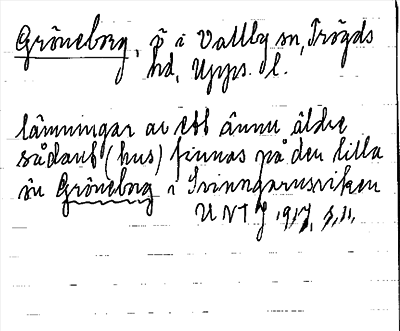 Gröneborg, ö i Vallby sn, Trögds
hd, Upps. l.
lämningar av ett ännu äldre
sådant (hus) finnas på den lilla
ön Gröneborg i Svinngarnsviken
UNT J 1917, s. 11,